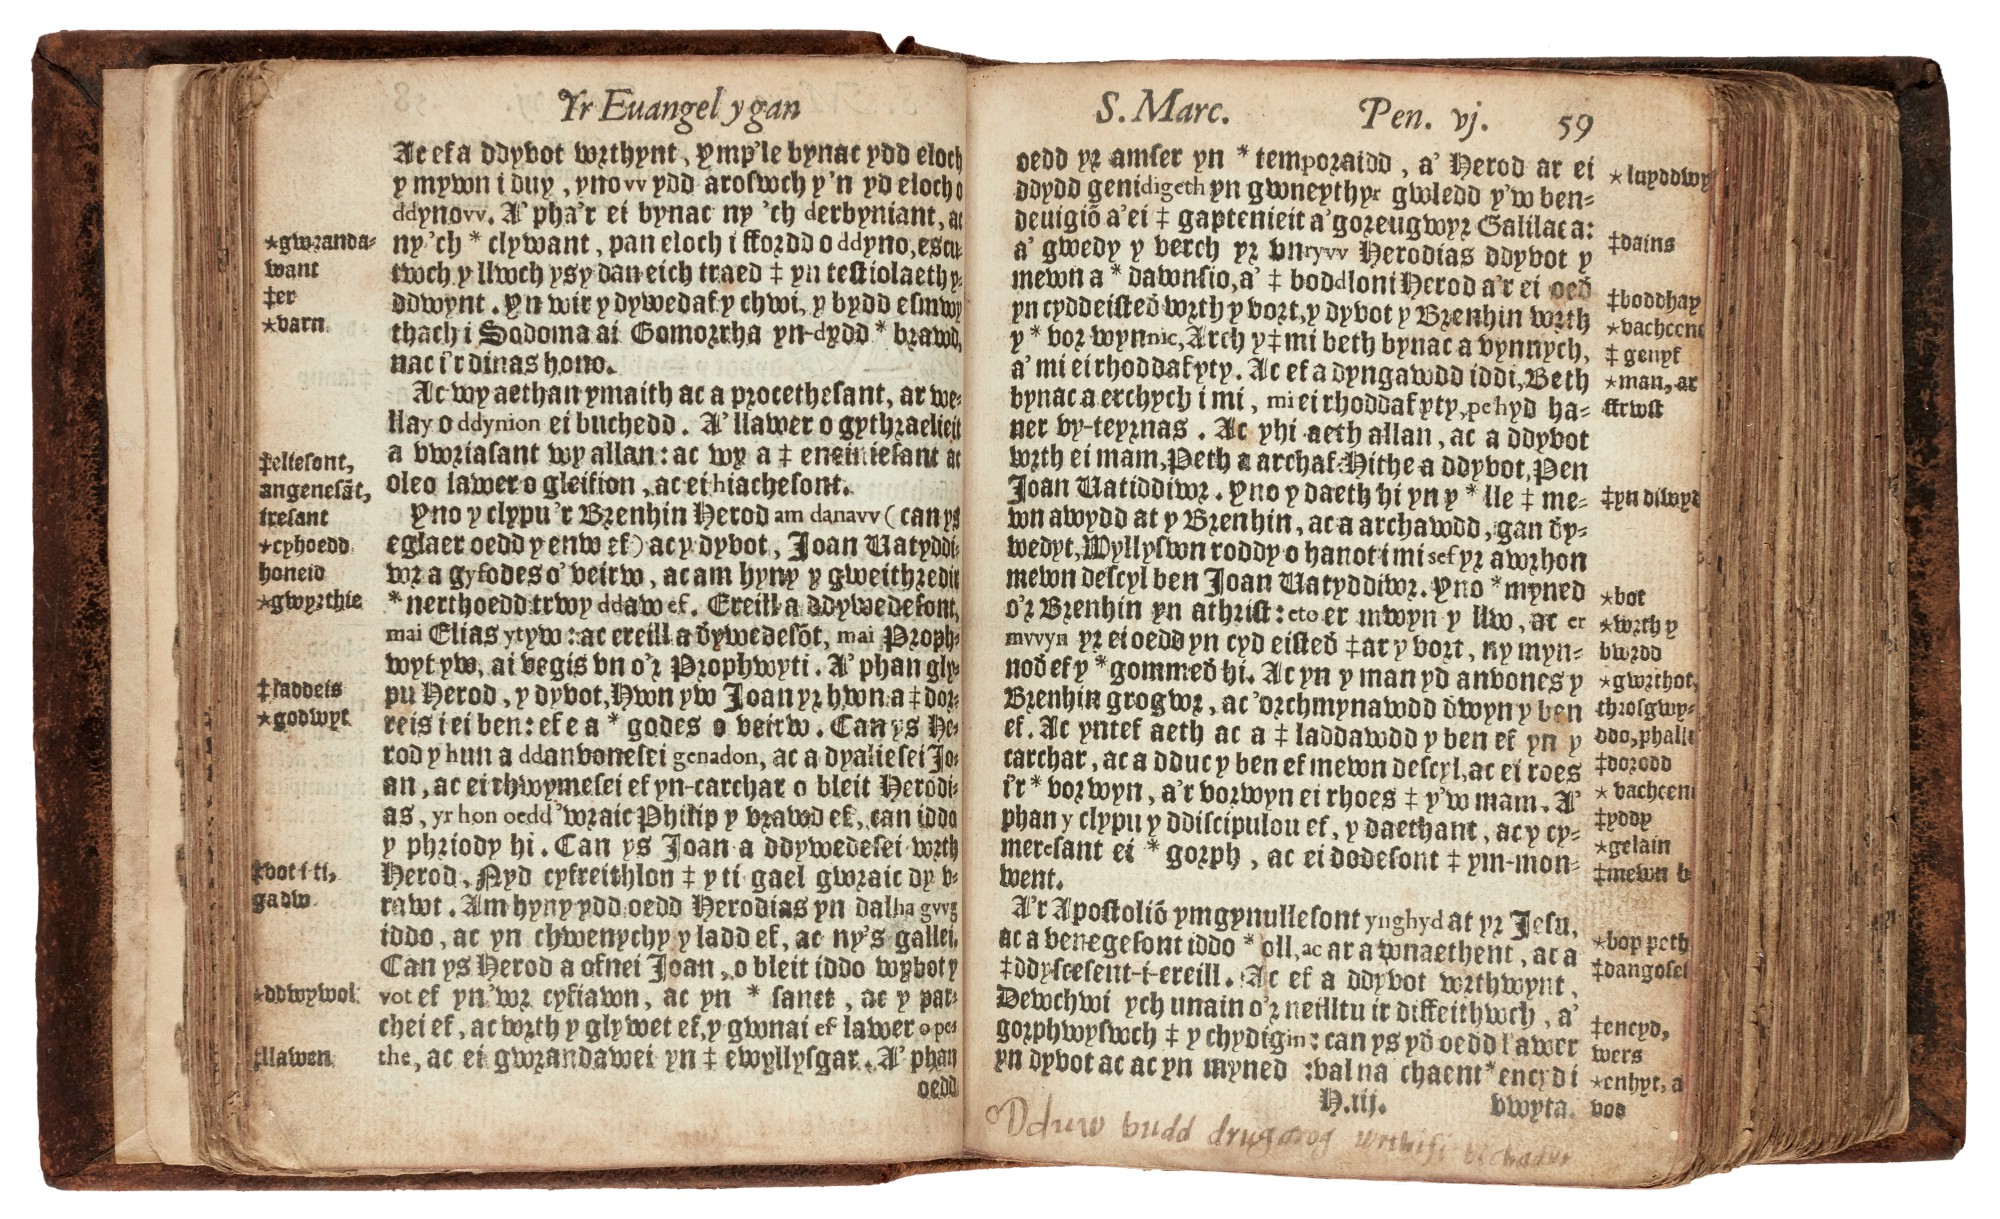 Yr Euangel y gan
Ac ef a ddyvot wrthynt, ymp'le bynac ydd eloch
y mywn i duy, yno vv ydd aroswch y'n yd eloch o
ddyno vv. A' pha'r ei bynac ny 'ch derbyniant, ac
ny 'ch * clywant, pan eloch i ffordd o ddyno, escu-
twch y llwch ysy dan eich traed ‡ yn testiolaeth y-
ddwynt. Yn wir y dywedaf y chwi, y bydd esmwy
thach i Sodoma ai Gomorrha yn-dydd * brawd,
nac i'r dinas hono.
Ac wy aethan ymaith ac a procethesant, ar we-
llay o ddynion ei buchedd. A' llawer o gythraelieit
a vwriasant wy allan: ac wy a ‡ eneiniesant ac
oleo lawer o gleifion, ac ei hiachesont.
Yno y clypu'r Brenhin Herod am danavv (can ys
eglaer oedd y enw ef) ac y dyvot, Joan Vatyddi-
wr a gyfodes o' veirw, ac am hyny y gweithredir
* nerthoedd trwy ddaw ef. Ereill a ddywedesont,
mai Elias ytyw: ac ereill a ðywedesõt, mai Proph-
wyt yw, ai vegis vn o'r Prophwyti. A' phan gly-
pu Herod, y dyvot, Hwn yw Joan yr hwn a ‡ dor-
reis i ei ben: ef e a * godes o veirw. Can ys He-
rod y hun a ddanvonesei genadon, ac a dyaliesei Jo-
an, ac ei rhwymesei ef yn-carchar o bleit Herodi-
as, yr hon oedd 'wraic Philip y vrawd ef, can iddo
y phriody hi. Can ys Joan a ddywedesei wrth
Herod, Nyd cyfreithlon ‡ y ti gael gwraic dy v-
rawt. Am hyny ydd oedd Herodias yn dalha gvvg
iddo, ac yn chwenychy y ladd ef, ac ny's gallei.
Can ys Herod a ofnei Joan, o bleit iddo wybot y
vot ef yn 'wr cyfiawn, ac yn * sanct, ac y par-
chei ef, ac wrth y glywet ef, y gwnai ef lawer o pe-
the, ac ei gwrandawei yn ‡ ewyllysgar. A' phan
oedd
*gwranda-
want
‡er
*varn
‡eliesont,
angenesãt,
iresant
*cyhoedd
honeid
*gwyrthie
‡laddeis
*godwyt
‡vot i ti,
gadw
*ddwywol
‡llawen
S. Marc. Pen. vj. 59
oedd yr amser yn * temporaidd, a' Herod ar ei
ddydd genidigeth yn gwneythyr gwledd y'w ben-
deuigiõ a'ei ‡ gaptenieit a' goreugwyr Galilaea:
a' gwedy y verch yr vnryvv Herodias ddyvot y
mewn a * dawnsio, a' ‡ boddloni Herod a'r ei oeð
yn cyddeisteð wrth y vort, y dyvot y Brenhin wrth
y * vorwynnic, Arch y ‡ mi beth bynac a vynnych,
a' mi ei rhoddaf yty. Ac ef a dyngawdd iddi, Beth
bynac a erchych i mi, mi ei rhoddaf yty, pe hyd ha-
ner vy-teyrnas. Ac yhi aeth allan, ac a ddyvot
wrth ei mam, Peth a archaf: Hithe a ddyvot, Pen
Joan Vatiddiwr. Yno y daeth hi yn y * lle ‡ me-
wn awydd at y Brenhin, ac a archawdd, gan ðy-
wedyt, Wyllyswn roddy o hanot i mi sef yr awrhon
mewn descyl ben Joan Vatyddiwr. Yno * myned
o'r Brenhin yn athrist: eto er mwyn y llw, ac er
mvvyn yr ei oedd yn cyd eisteð ‡ ar y vort, ny myn-
noð ef y * gommeð hi. Ac yn y man yd anvones y
Brenhin grogwr, ac 'orchmynawdd ðwyn y ben
ef. Ac yntef aeth ac a ‡ laddawdd y ben ef yn y
carchar, ac a dduc y ben ef mewn descyl, ac ei roes
i'r * vorwyn, a'r vorwyn ei rhoes ‡ y'w mam. A'
phan y clypu y ddiscipulou ef, y daethant, ac y cy-
meresant ei * gorph, ac ei dodesont ‡ ym-mon-
went.
A'r Apostoliõ ymgynullesont ynghyd at yr Jesu,
ac a venegesont iddo * oll, ac ar a wnaethent, ac a
‡ddyscesent-i-ereill. Ac ef a ddyvot wrthwynt,
Dewchwi ych unain o'r neilltu ir diffeithwch, a'
gorphwyswch ‡ y chydigin: can ys yð oedd lawer
yn dyvot ac ac yn myned: val na chaent * encyd i
H.iij. vwyta.
*luyddwy
‡dains
‡boddhay
*vachcene
‡ genyf
*man, ar
ffrwst
‡yn diwyd
*bot
*wrth y
bwrdd
*gwrthot,
throsgwy-
ddo, phally
‡dorodd
* vachceni
‡yddy
*gelain
‡mewn b
*bop peth
‡dangosel
‡encyd,
wers
*enhyt, a
vod
O Dduw budd drugarog wrthifi bechadur